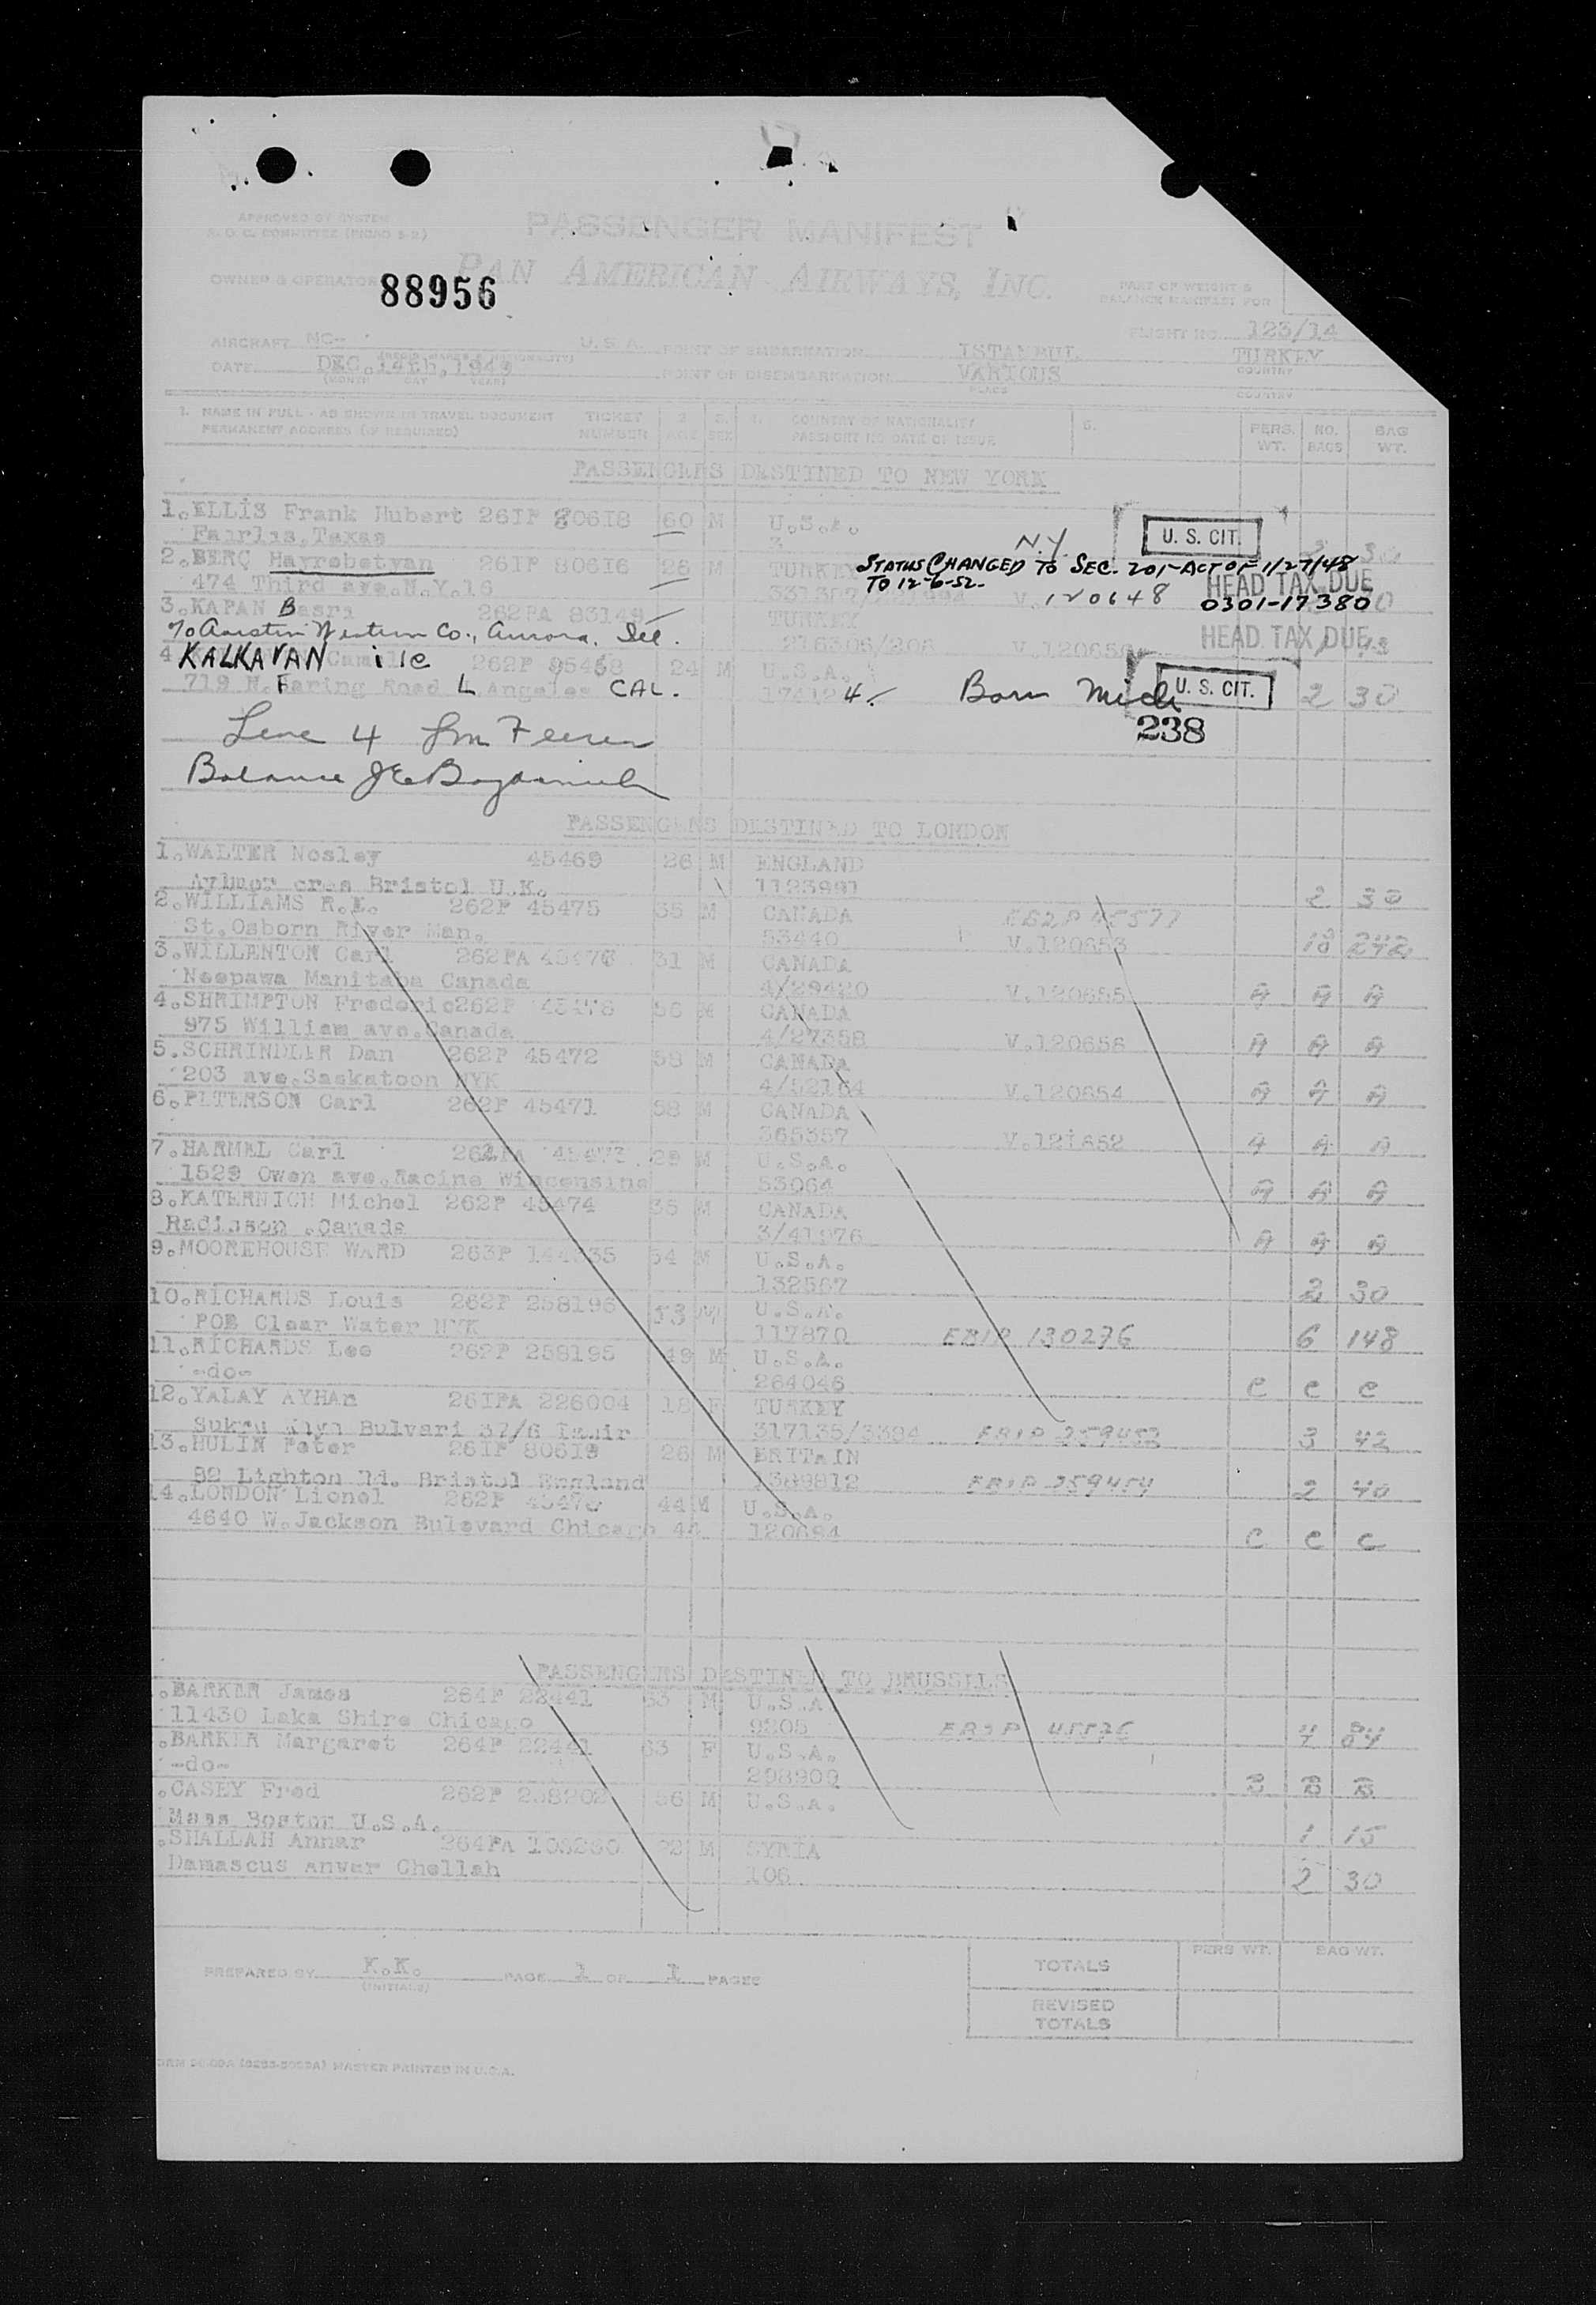 APPROVED BY SYSTEM
PASSENGER MANIFEST
PAN AMERICAN AIRWAYS, INC.
OWNER & OPERATOR
88956
PART OF WEIGHT &
BALANCE MANIFEST FOR
FLIGHT NO. 123/14
AIRCRAFT NC- U.S.A. POINT OF EMBARKATION ISTANBUL TURKEY
DATE DEC.14th,1949 POINT OF DISEMBARKATION VARIOUS
(MONTH DAY YEAR) PLACE COUNTRY
1. NAME IN FULL - AS SHOWN IN TRAVEL DOCUMENT TICKET 4. COUNTRY OF NATIONALITY 6. PERS. NO. BAG
PERMANENT ADDRESS (IF REQUIRED) NUMBER AGE SEX PASSPORT NO DATE OF ISSUE WT. BAGS WT.
PASSENGERS DESTINED TO NEW YORK
1.ELLIS Frank Hubert 26IP 80618 60 M U.S.A. U. S. CIT.
Texas
2.BERÇ Hayrebetyan 26IP 80616 26 M TURKEY N.Y.
STATUS CHANGED TO SEC. 201-ACT OF 1/27/48
TO 12-6-52.
474 Third ave.N.Y.16 V. 120648 HEAD TAX DUE
0301-17380
3.KAPAN Basri 262PA 83149 TURKEY
% Austin Western Co., Aurora, Ill. 216306/208 HEAD TAX DUE
4 KALKAVAN Camille 262P 24 M U.S.A.
719 N.Faring Road L Angeles CAL. 174124. Born Mich U. S. CIT. 2 30
238
Line 4
Balance
PASSENGERS DESTINED TO LONDON
1.WALTER Nosley 45469 26 M ENGLAND
Aylmer cres Bristol U.K. 1123991 2 30
2.WILLIAMS R.E. 262P 45475 35 M CANADA
St.Osborn River Man. 53440 V.120653
3.WILLENTON Carl 262PA 31 M CANADA
Neepawa Manitaba Canada 4/29420 V.120655 A A A
4.SHRIMPTON Frederic 262P 56 M CANADA
975 William ave.Canada 4/27358 V.120656 A A A
5.SCHRINDLER Dan 262P 45472 58 M CANADA
203 ave.Saskatoon NYK 4/52164 V.120654 A A A
6.PETERSON Carl 262P 45471 58 M CANADA
365357 A A A
7.HARMEL Carl 29 M U.S.A.
1529 Owen ave.Racine Wincensins 53064 A A A
8.KATERNICH Michel 262P 45474 35 M CANADA
Radisson .Canada 3/41976 A A A
9.MOOREHOUSE WARD 263P 54 M U.S.A.
132567 2 30
10.RICHARDS Louis 262P 258196 53 M U.S.A.
POB Clear Water NYK 117870 EBIP 130276 6 148
11.RICHARDS Lee 262P 258195 49 M U.S.A.
-do- 264046 C C C
12.YALAY AYHAN 26IPA 226004 18 F TURKEY
Bulvari 37/6 Izmir 317135/3394 EBIP 259453 3 42
13.HULIN Peter 26IP 80619 26 M BRITAIN
82 Lighton Rd. Bristol England 1389812 EBIP 259454 2 40
14.LONDON Lionel 262P 44 M U.S.A.
4640 W.Jackson Bulevard Chicago 44 120684 C C C
PASSENGERS DESTINED TO BRUSSELS
.BARKER James 264P 22441 63 M U.S.A
11430 Laka Shire Chicago 9205
.BARKER Margaret 264P 22441 63 F U.S.A.
-do- 298909 B B B
.CASEY Fred 262P 258202 56 M U.S.A.
Mass Boston U.S.A. 1 15
.SHALLAH Annar 264PA 22 M SYRIA
Damascus Anwar Chellah 106 2 30
PERS WT. BAG WT.
PREPARED BY K.K. PAGE 1 OF 1 PAGES TOTALS
(INITIALS)
REVISED
TOTALS
MASTER PRINTED IN U.S.A.